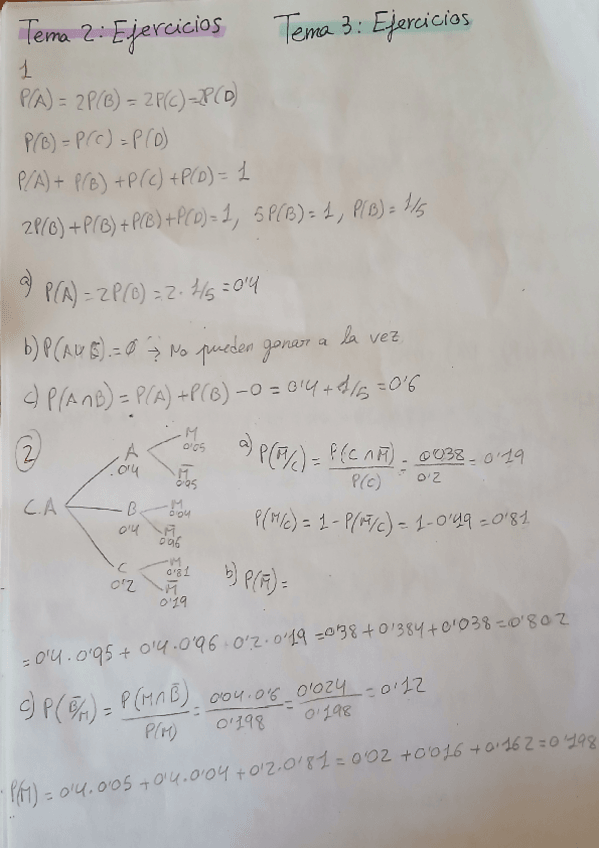 Tema 2: Ejercicios Tema 3: Ejercicios
1
P(A) = 2P(B) = 2P(C) = 2P(D)
P(B) = P(C) = P(D)
P(A) + P(B) + P(C) + P(D) = 1
2P(B) + P(B) + P(B) + P(D) = 1, 5P(B) = 1, P(B) = 1/5
a) P(A) = 2P(B) = 2 · 1/5 = 0'4
b) P(A∪B). = ∅ → No pueden ganar a la vez.
c) P(A∩B) = P(A) + P(B) - 0 = 0'4 + 1/5 = 0'6
2
C.A
A 0'4
M 0'05
M̅ 0'95
B 0'4
M 0'04
M̅ 0'96
C 0'2
M 0'81
M̅ 0'19
a) P(M̅/C) = P(C∩M̅)/P(C) = 0'038/0'2 = 0'19
P(M/C) = 1 - P(M̅/C) = 1 - 0'19 = 0'81
b) P(M̅) =
= 0'4 · 0'95 + 0'4 · 0'96 · 0'2 · 0'19 = 0'38 + 0'384 + 0'038 = 0'802
c) P(B̅/M) = P(M∩B̅)/P(M) = 0'04 · 0'6/0'198 = 0'024/0'198 = 0'12
P(M) = 0'4 · 0'05 + 0'4 · 0'04 + 0'2 · 0'81 = 0'02 + 0'016 + 0'162 = 0'198